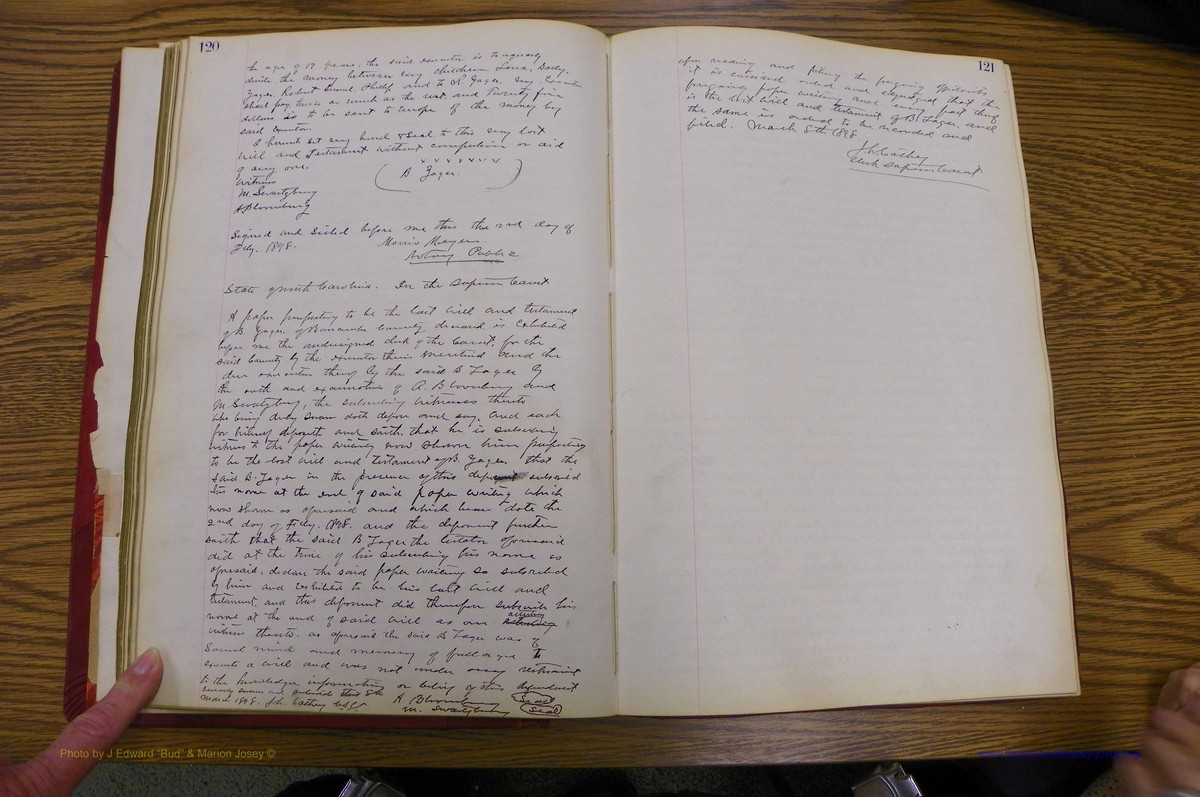 120
the age of 19 years. the said executor is to equally
divide the money between my children Lena, Sady,
Zager, Robert Emanul Philip and to R Zager. my Executor
shall pay twice as much as the rest and Twenty five
dollars is to be sent to Europe of the money by
said Executor.
I hereunto set my hand & Seal to this my last
Will and Testament without compulsion or aid
of any one.
B Zager
Witness
M. Swartzburg
A Bloomburg
Signed and Sealed before me this the 2nd day of
Feby. 1898.
Morris Meyers
Notary Public
State of North Carolina. In the Superior Court
A paper purporting to be the last Will and testament
of B. Zager, of Buncombe County, deceased is Exhibited
before me the undersigned clerk of the Court for the
said County by the executor therein mentioned and the
due execution thereof by the said B Zager by
the oath and examination of A. Bloomburg and
M. Swartzburg, the subscribing witnesses thereto
who being duly sworn doth depose and say, and each
for himself deposeth and saith, that he is subscribing
witness to the paper writing now shown him purporting
to be the last Will and testament of B. Zager, that the
said B. Zager in the presence of this deponent subscribed
his name at the end of said paper writing which
now shown as aforesaid and which bears date the
2nd day of Feby. 1898. and the deponent further
saith that the said B Zager the testator aforesaid
did at the time of his subscribing his name as
aforesaid, declare the said paper writing so subscribed
by him and exhibited to be his last Will and
testament, and this deponent did thereupon subscribe his
name at the end of said Will as an attesting
witness thereto. as aforesaid the said B Zager was of
Sound mind and memory of full age to
execute a Will and was not under any restraint
to the knowledge information or belief of this deponent
Severally sworn and subscribed this 8th
March 1898. J.L. Cathey C.S.C.
A Bloomburg (Seal)
M. Swartzburg (Seal)
121
upon reading and filing the foregoing affidavits
it is considered ordered and adjudged that the
foregoing paper writing and every part thereof
is the last Will and testament of B Zager, and
the same is ordered to be recorded and
filed. March 8th 1898
J.L. Cathey
Clerk Superior Court
Photo by J Edward "Bud" & Marion Josey ©